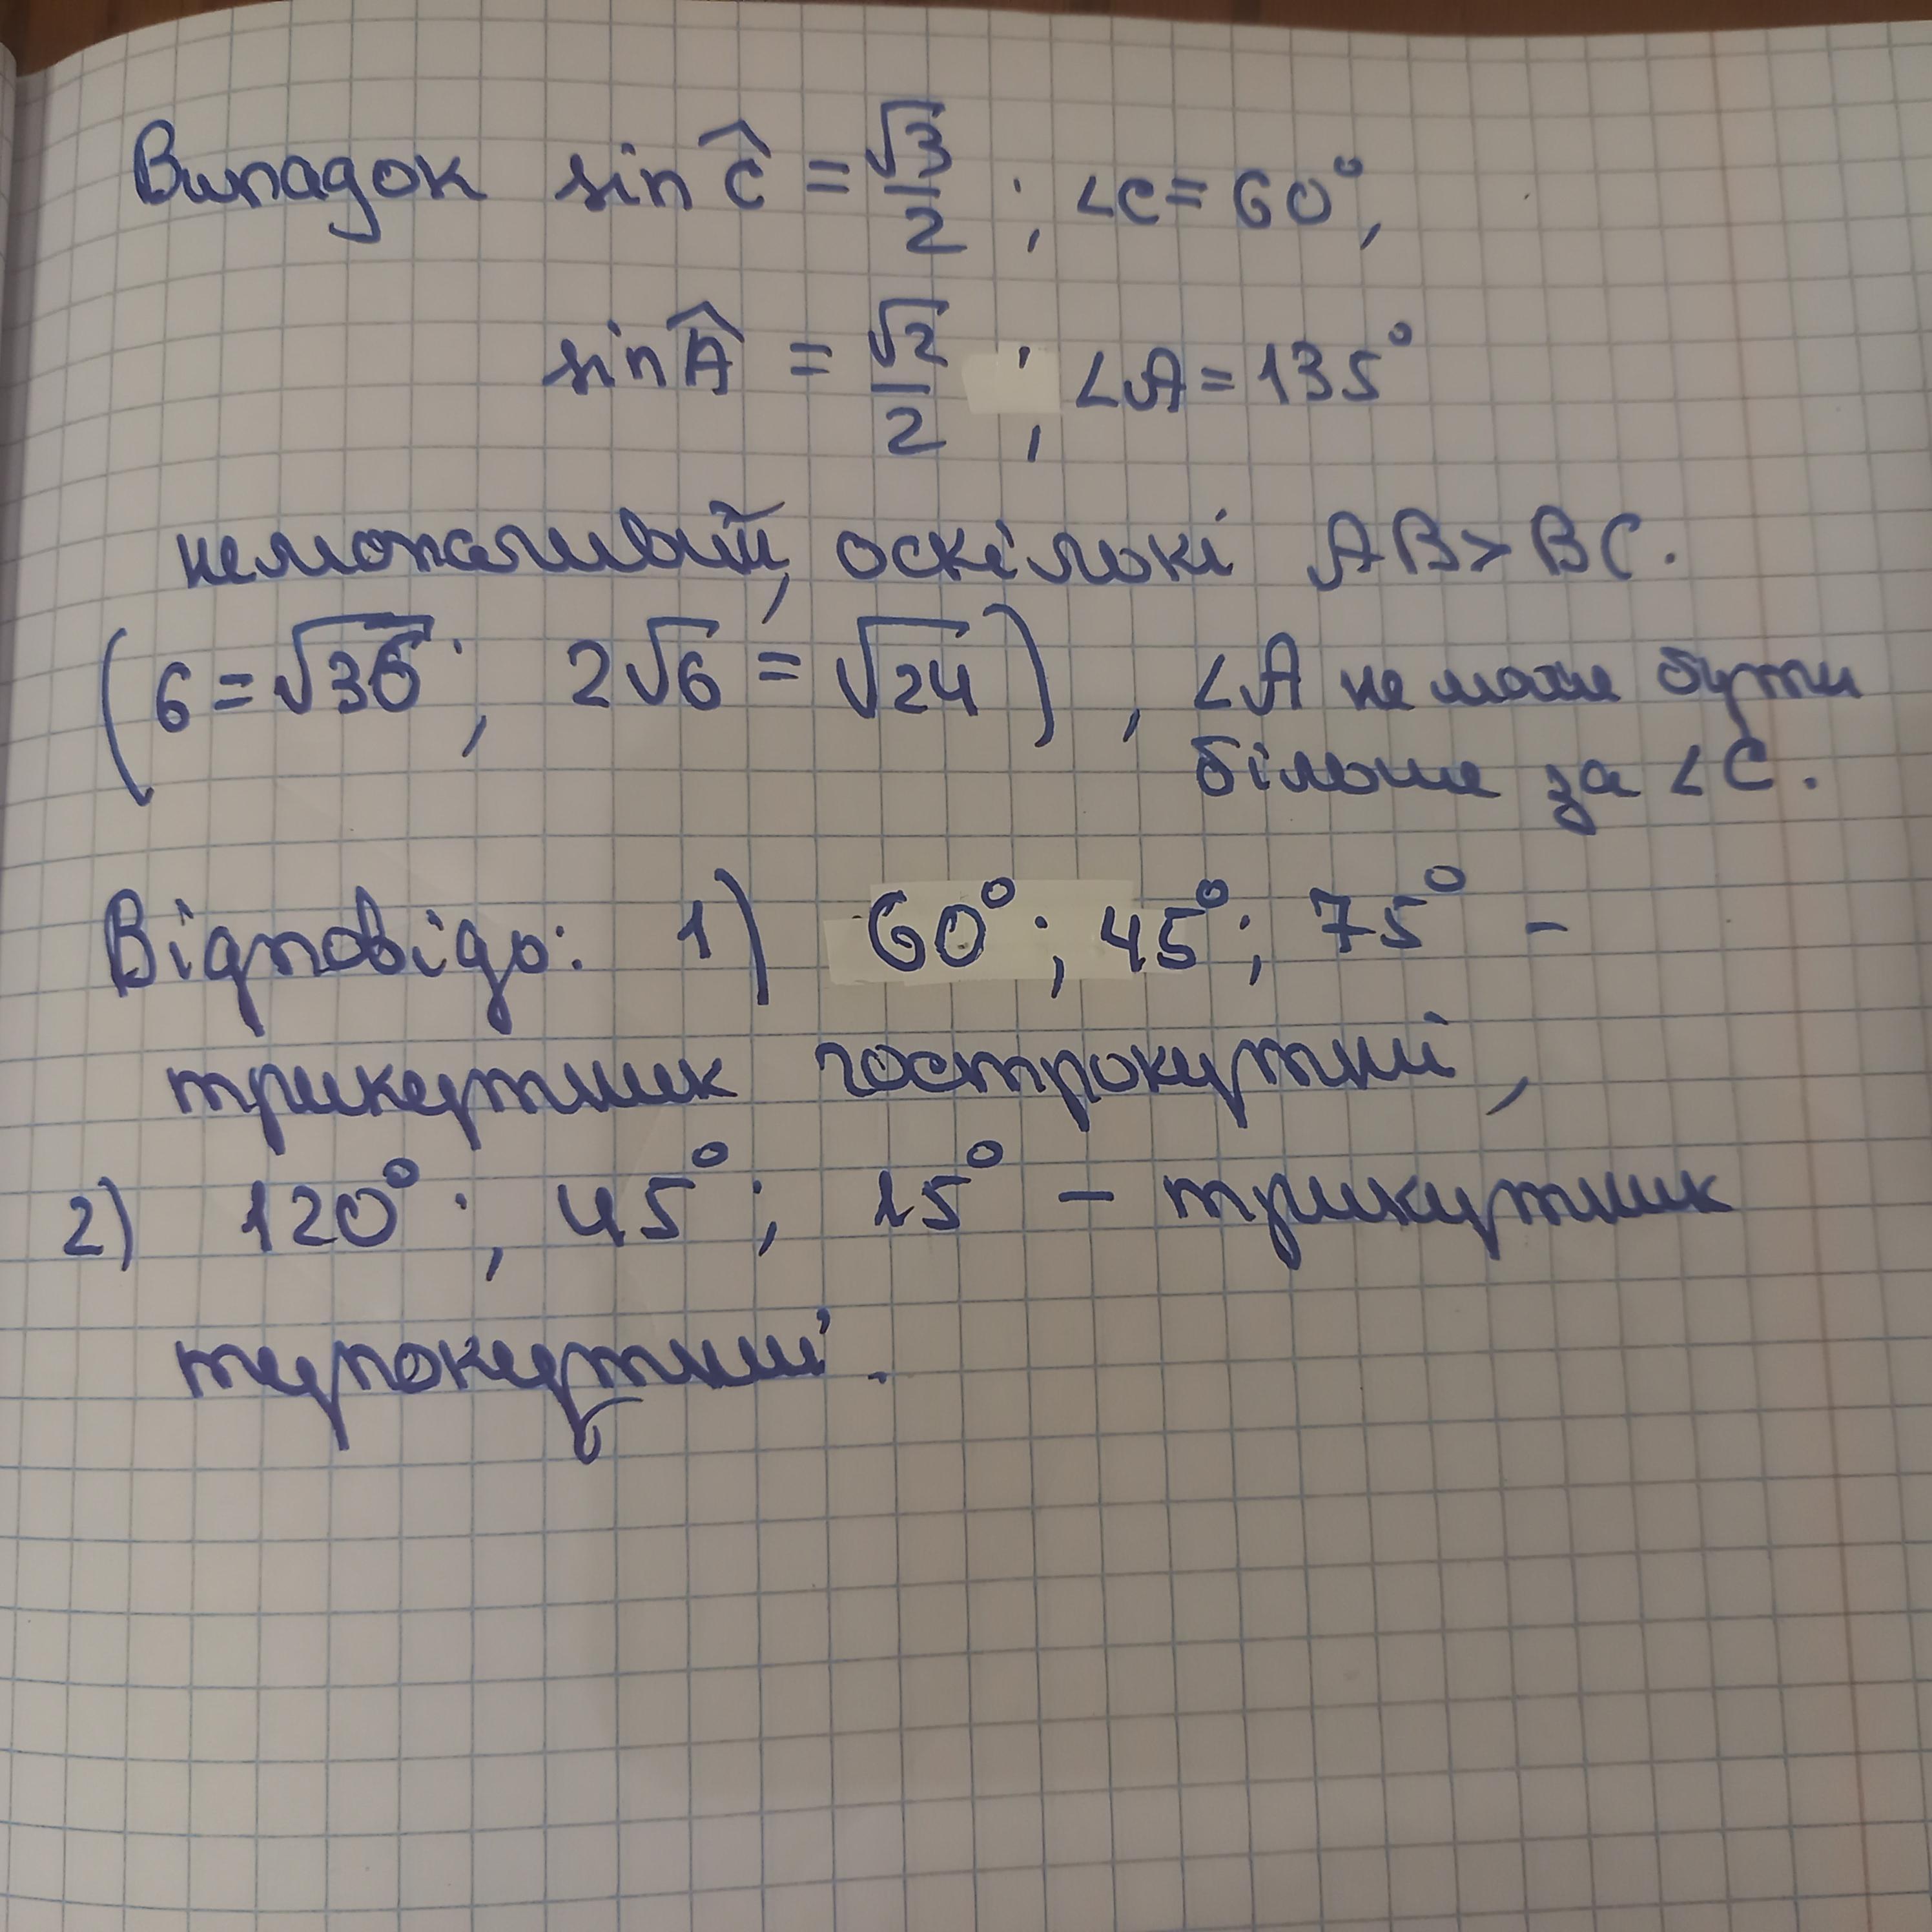 Випадок sin Ĉ = √3/2 ; ∠C = 60°,
sin Â = √2/2 ; ∠A = 135°
неможливий, оскількі AB > BC.
(6 = √36 ; 2√6 = √24) , ∠A не може бути
більше за ∠C.
Відповідь: 1) 60° ; 45° ; 75° –
трикутник гострокутний,
2) 120° ; 45° ; 15° – трикутник
тупокутний.